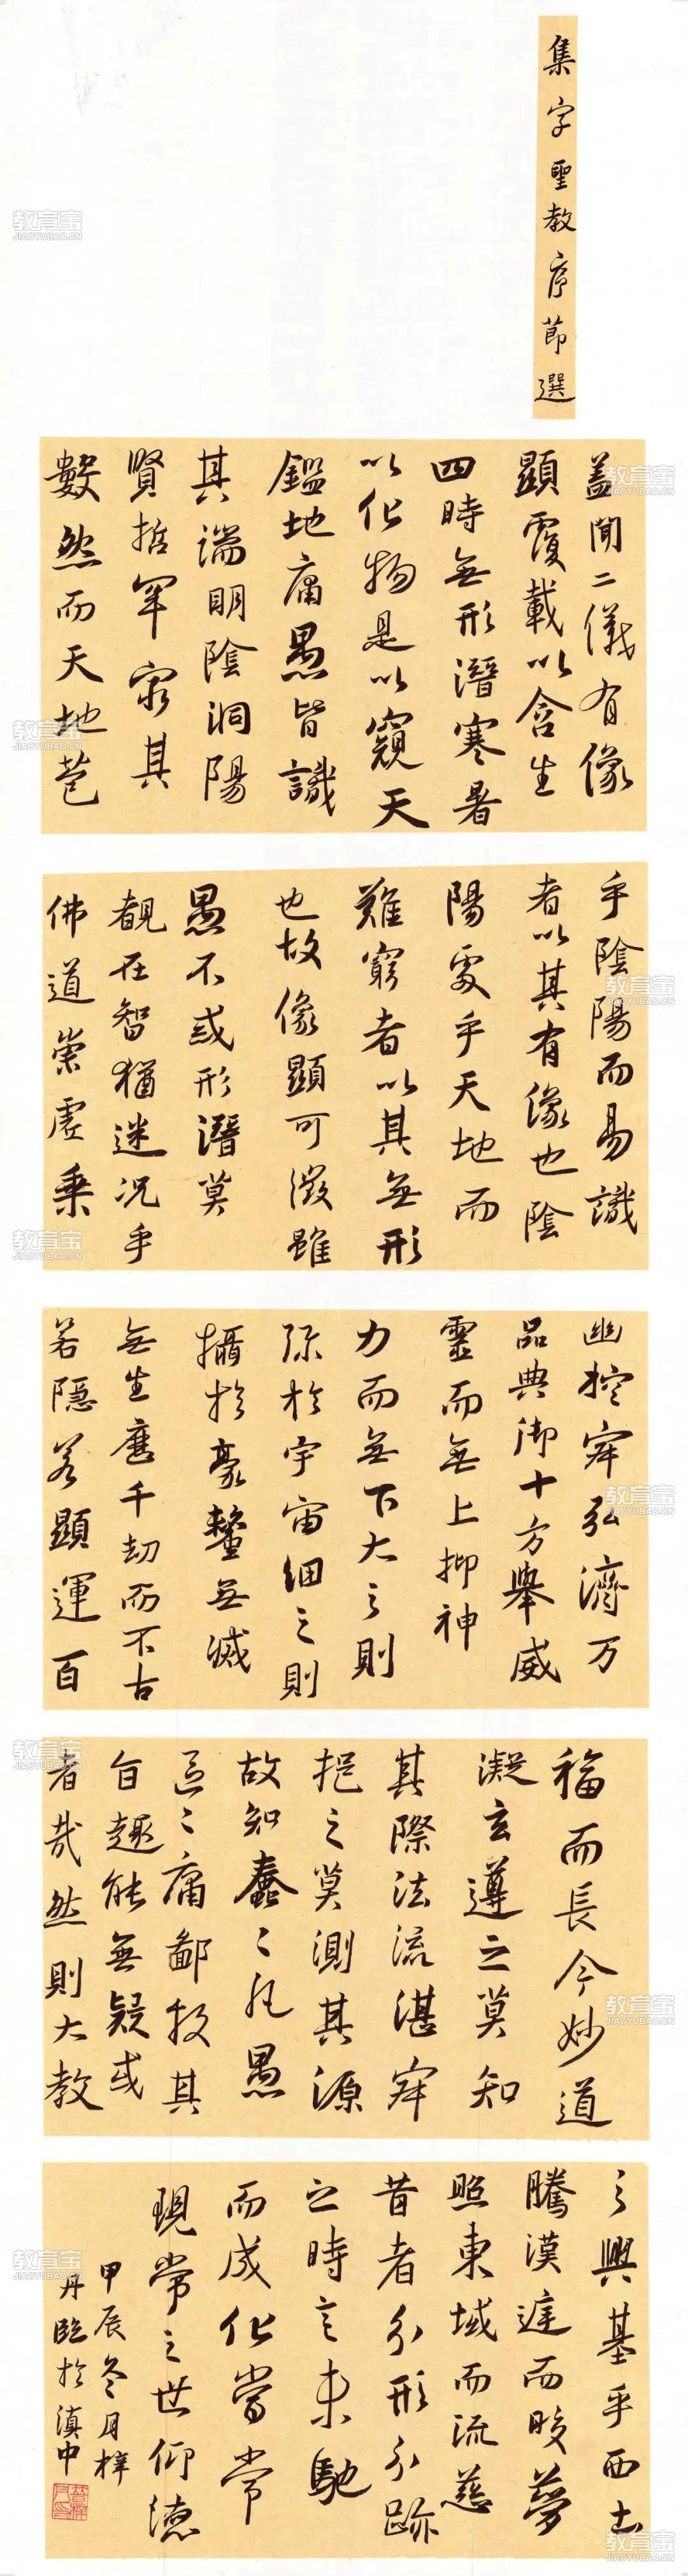 集字聖教序節選
蓋聞二儀有像
顯覆載以含生
四時無形潛寒暑
以化物是以窺天
鑑地庸愚皆識
其端明陰洞陽
賢哲罕窮其
數然而天地苞
乎陰陽而易識
者以其有像也陰
陽處乎天地而
難窮者以其無形
也故像顯可徵雖
愚不惑形潛莫
覩在智猶迷況乎
佛道崇虛乘
幽控寂弘濟万
品典御十方舉威
靈而無上抑神
力而無下大之則
彌於宇宙細之則
攝於豪釐無滅
無生歷千劫而不古
若隱若顯運百
福而長今妙道
凝玄遵之莫知
其際法流湛寂
挹之莫測其源
故知蠢〻凡愚
區〻庸鄙投其
旨趣能無疑或
者哉然則大教
之興基乎西土
騰漢庭而皎夢
照東域而流慈
昔者分形分跡
之時言未馳
而成化當常
現常之世仰德
甲辰冬月梓
丹臨於滇中
教育宝
JIAOYUBAO.CN